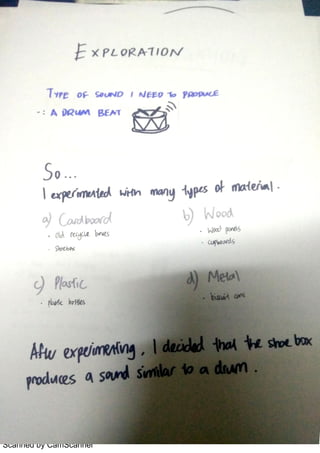 EXPLORATION
TYPE OF SOUND I NEED TO PRODUCE
-: A DRUM BEAT
So...
I experimented with many types of material.
a) Cardboard
b) Wood
• Old recycle boxes
• Wood panels
• Shoebox
• cupboards
c) Plastic
d) Metal
• Plastic bottles
• biscuit cans
After experimenting, I decided that the shoe box
produces a sound similar to a drum.
Scanned by CamScanner